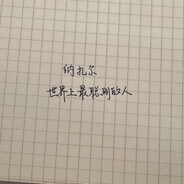 纳扎尔
世界上最聪明的人